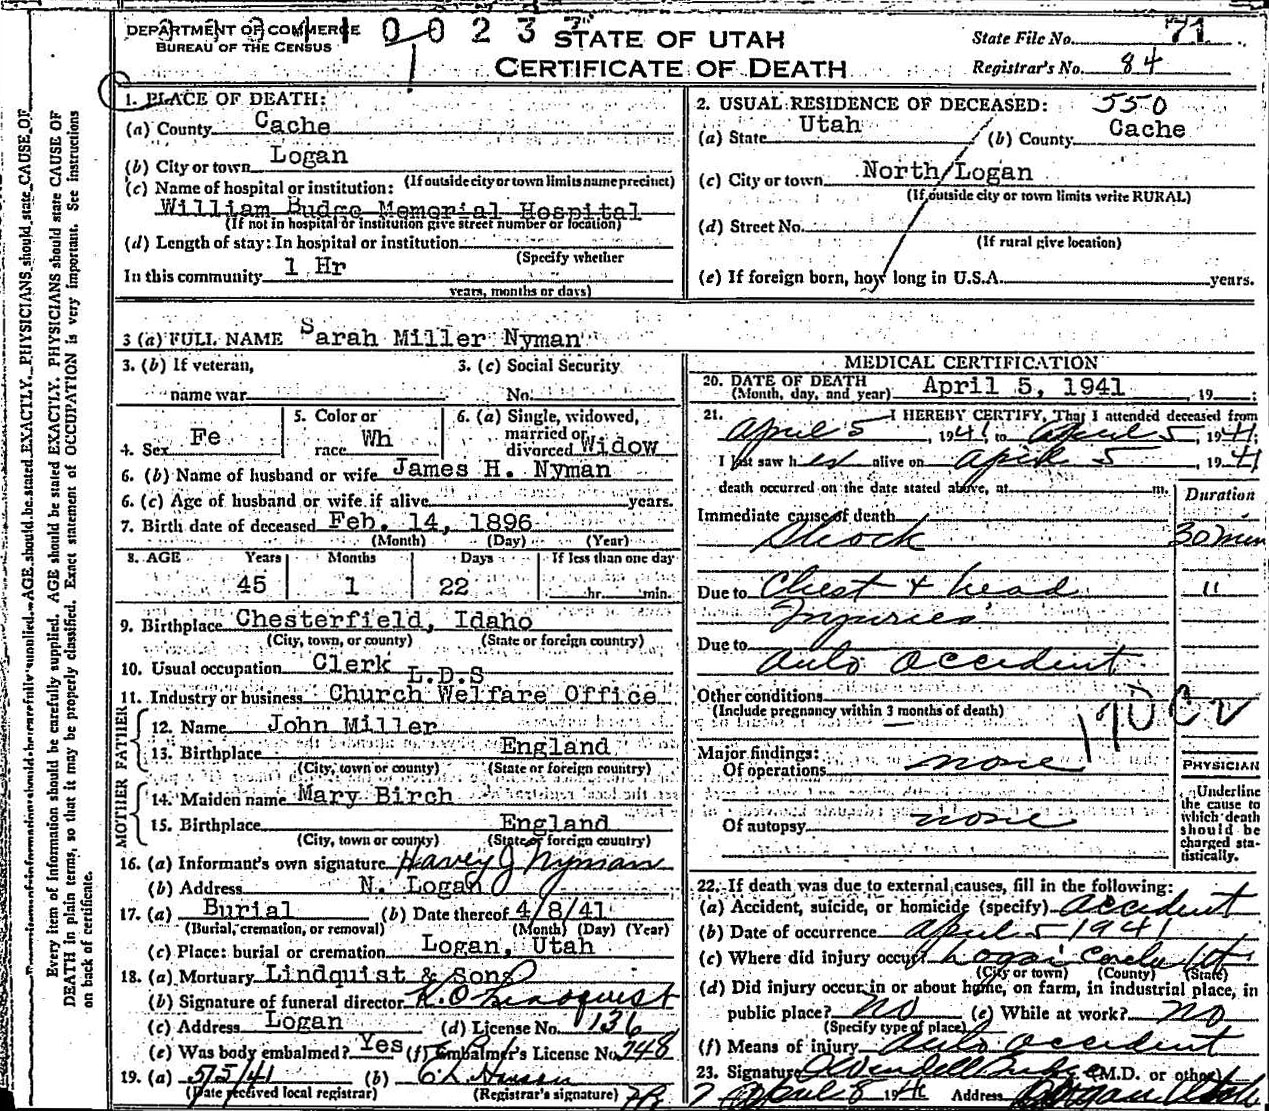 DEPARTMENT OF COMMERCE
BUREAU OF THE CENSUS
STATE OF UTAH
CERTIFICATE OF DEATH
State File No. 71
Registrar's No. 84
1. PLACE OF DEATH:
(a) County Cache
(b) City or town Logan
(If outside city or town limits name precinct)
(c) Name of hospital or institution:
William Budge Memorial Hospital
(If not in hospital or institution give street number or location)
(d) Length of stay: In hospital or institution
(Specify whether
In this community 1 Hr
years, months or days)
2. USUAL RESIDENCE OF DECEASED: 550
(a) State Utah (b) County Cache
(c) City or town North Logan
(If outside city or town limits write RURAL)
(d) Street No.
(If rural give location)
(e) If foreign born, how long in U.S.A. years.
3 (a) FULL NAME Sarah Miller Nyman
3. (b) If veteran, name war
3. (c) Social Security No.
4. Sex Fe
5. Color or race Wh
6. (a) Single, widowed, married or divorced Widow
6. (b) Name of husband or wife James H. Nyman
6. (c) Age of husband or wife if alive years.
7. Birth date of deceased Feb. 14, 1896
(Month) (Day) (Year)
8. AGE Years Months Days If less than one day
45 1 22 hr. min.
9. Birthplace Chesterfield, Idaho
(City, town, or county) (State or foreign country)
10. Usual occupation Clerk
L.D.S
11. Industry or business Church Welfare Office
FATHER
12. Name John Miller
13. Birthplace England
(City, town or county) (State or foreign country)
MOTHER
14. Maiden name Mary Birch
15. Birthplace England
(City, town, or county) (State or foreign country)
16. (a) Informant's own signature Harvey J Nyman
(b) Address N. Logan
17. (a) Burial (b) Date thereof 4/8/41
(Burial, cremation, or removal) (Month) (Day) (Year)
(c) Place: burial or cremation Logan, Utah
18. (a) Mortuary Lindquist & Sons
(b) Signature of funeral director K. O. Lindquist
(c) Address Logan (d) License No. 136
(e) Was body embalmed? Yes (f) Embalmer's License No. 248
19. (a) 5/5/41 (b)
(Date received local registrar) (Registrar's signature)
MEDICAL CERTIFICATION
20. DATE OF DEATH April 5, 1941, 19
(Month, day, and year)
21. I HEREBY CERTIFY, That I attended deceased from
April 5, 1941, to April 5, 1941;
I last saw her alive on April 5, 1941
death occurred on the date stated above, at m.
Duration
Immediate cause of death
Shock 30 min
Due to Chest + head "
Injuries
Due to
Auto Accident
Other conditions
(Include pregnancy within 3 months of death)
Major findings:
Of operations none
Of autopsy none
PHYSICIAN
Underline
the cause to
which death
should be
charged sta-
tistically.
22. If death was due to external causes, fill in the following:
(a) Accident, suicide, or homicide (specify) Accident
(b) Date of occurrence April 5 1941
(c) Where did injury occur? Logan Cache Ut
(City or town) (County) (State)
(d) Did injury occur in or about home, on farm, in industrial place, in
public place? no (e) While at work? no
(Specify type of place)
(f) Means of injury Auto Accident
23. Signature (M.D. or other)
April 8 1941 Address Logan Utah
Every item of information should be carefully supplied. AGE should be stated EXACTLY. PHYSICIANS should state CAUSE OF
DEATH in plain terms, so that it may be properly classified. Exact statement of OCCUPATION is very important. See instructions
on back of certificate.